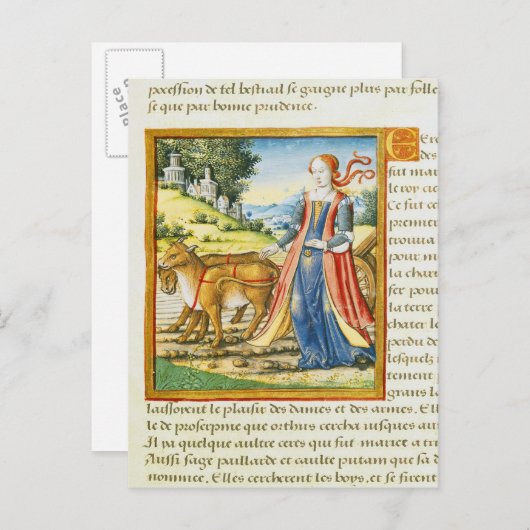 paxession de tel bestiail se gaigne plus par folle
se que par bonne prudence.
Cere
des
fut mar
le roy
Ce fut c
premier
trouua
pour m
la char
fer pour
la terre
chater le
perdu de
lesquelz
tement p
grans la
laisserent le plaisir des dames et des armes. Ell
le de proserpine que orthus cercha iusques au
Il ya quelque aultre ceres qui fut mariee a tr
Aussi sage paillarde et caulte putam que sa d
nommee. Elles cercherent les boys, et se firent
Zazzle
Place